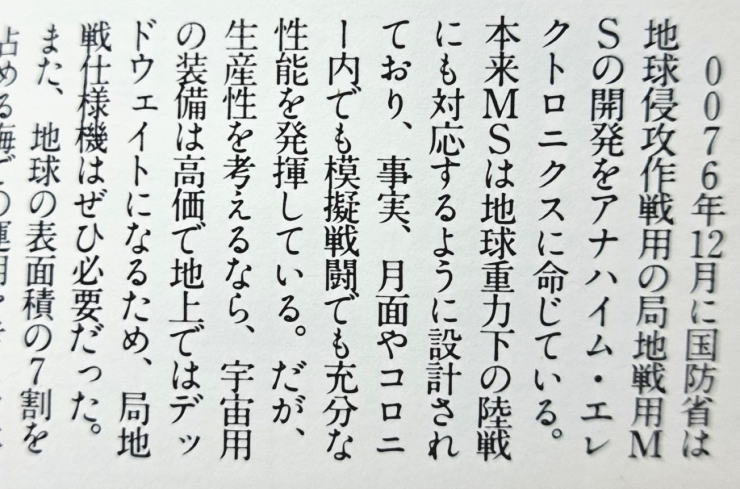 0076年12月に国防省は
地球侵攻作戦用の局地戦用M
Sの開発をアナハイム・エレ
クトロニクスに命じている。
本来MSは地球重力下の陸戦
にも対応するように設計され
ており、事実、月面やコロニ
ー内でも模擬戦闘でも充分な
性能を発揮している。だが、
生産性を考えるなら、宇宙用
の装備は高価で地上ではデッ
ドウェイトになるため、局地
戦仕様機はぜひ必要だった。
また、地球の表面積の7割を
占める海での運用を